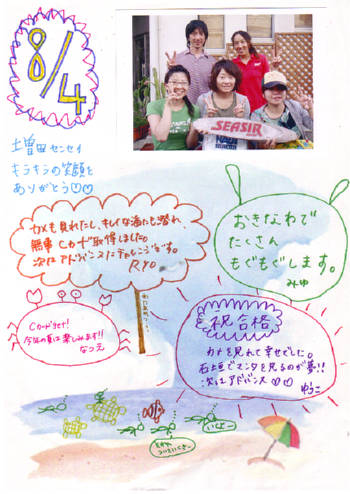 8/4
SEASIR
土曽田センセイ
キラキラの笑顔を
ありがとう♡♡
カメも見れたし、キレイな海にも潜れ、
無事Cカード取得しました。
次はアドバンスにチャレンジです。
RYO
おきなわで
たくさん
もぐもぐします。
みゆ
Cカードゲット!
今年の夏は楽しみます!!
なつえ
祝合格
カメを見れて幸せでした。
石垣でマンタを見るのが夢!!
次はアドバンス♡♡
ゆうこ
いくよー